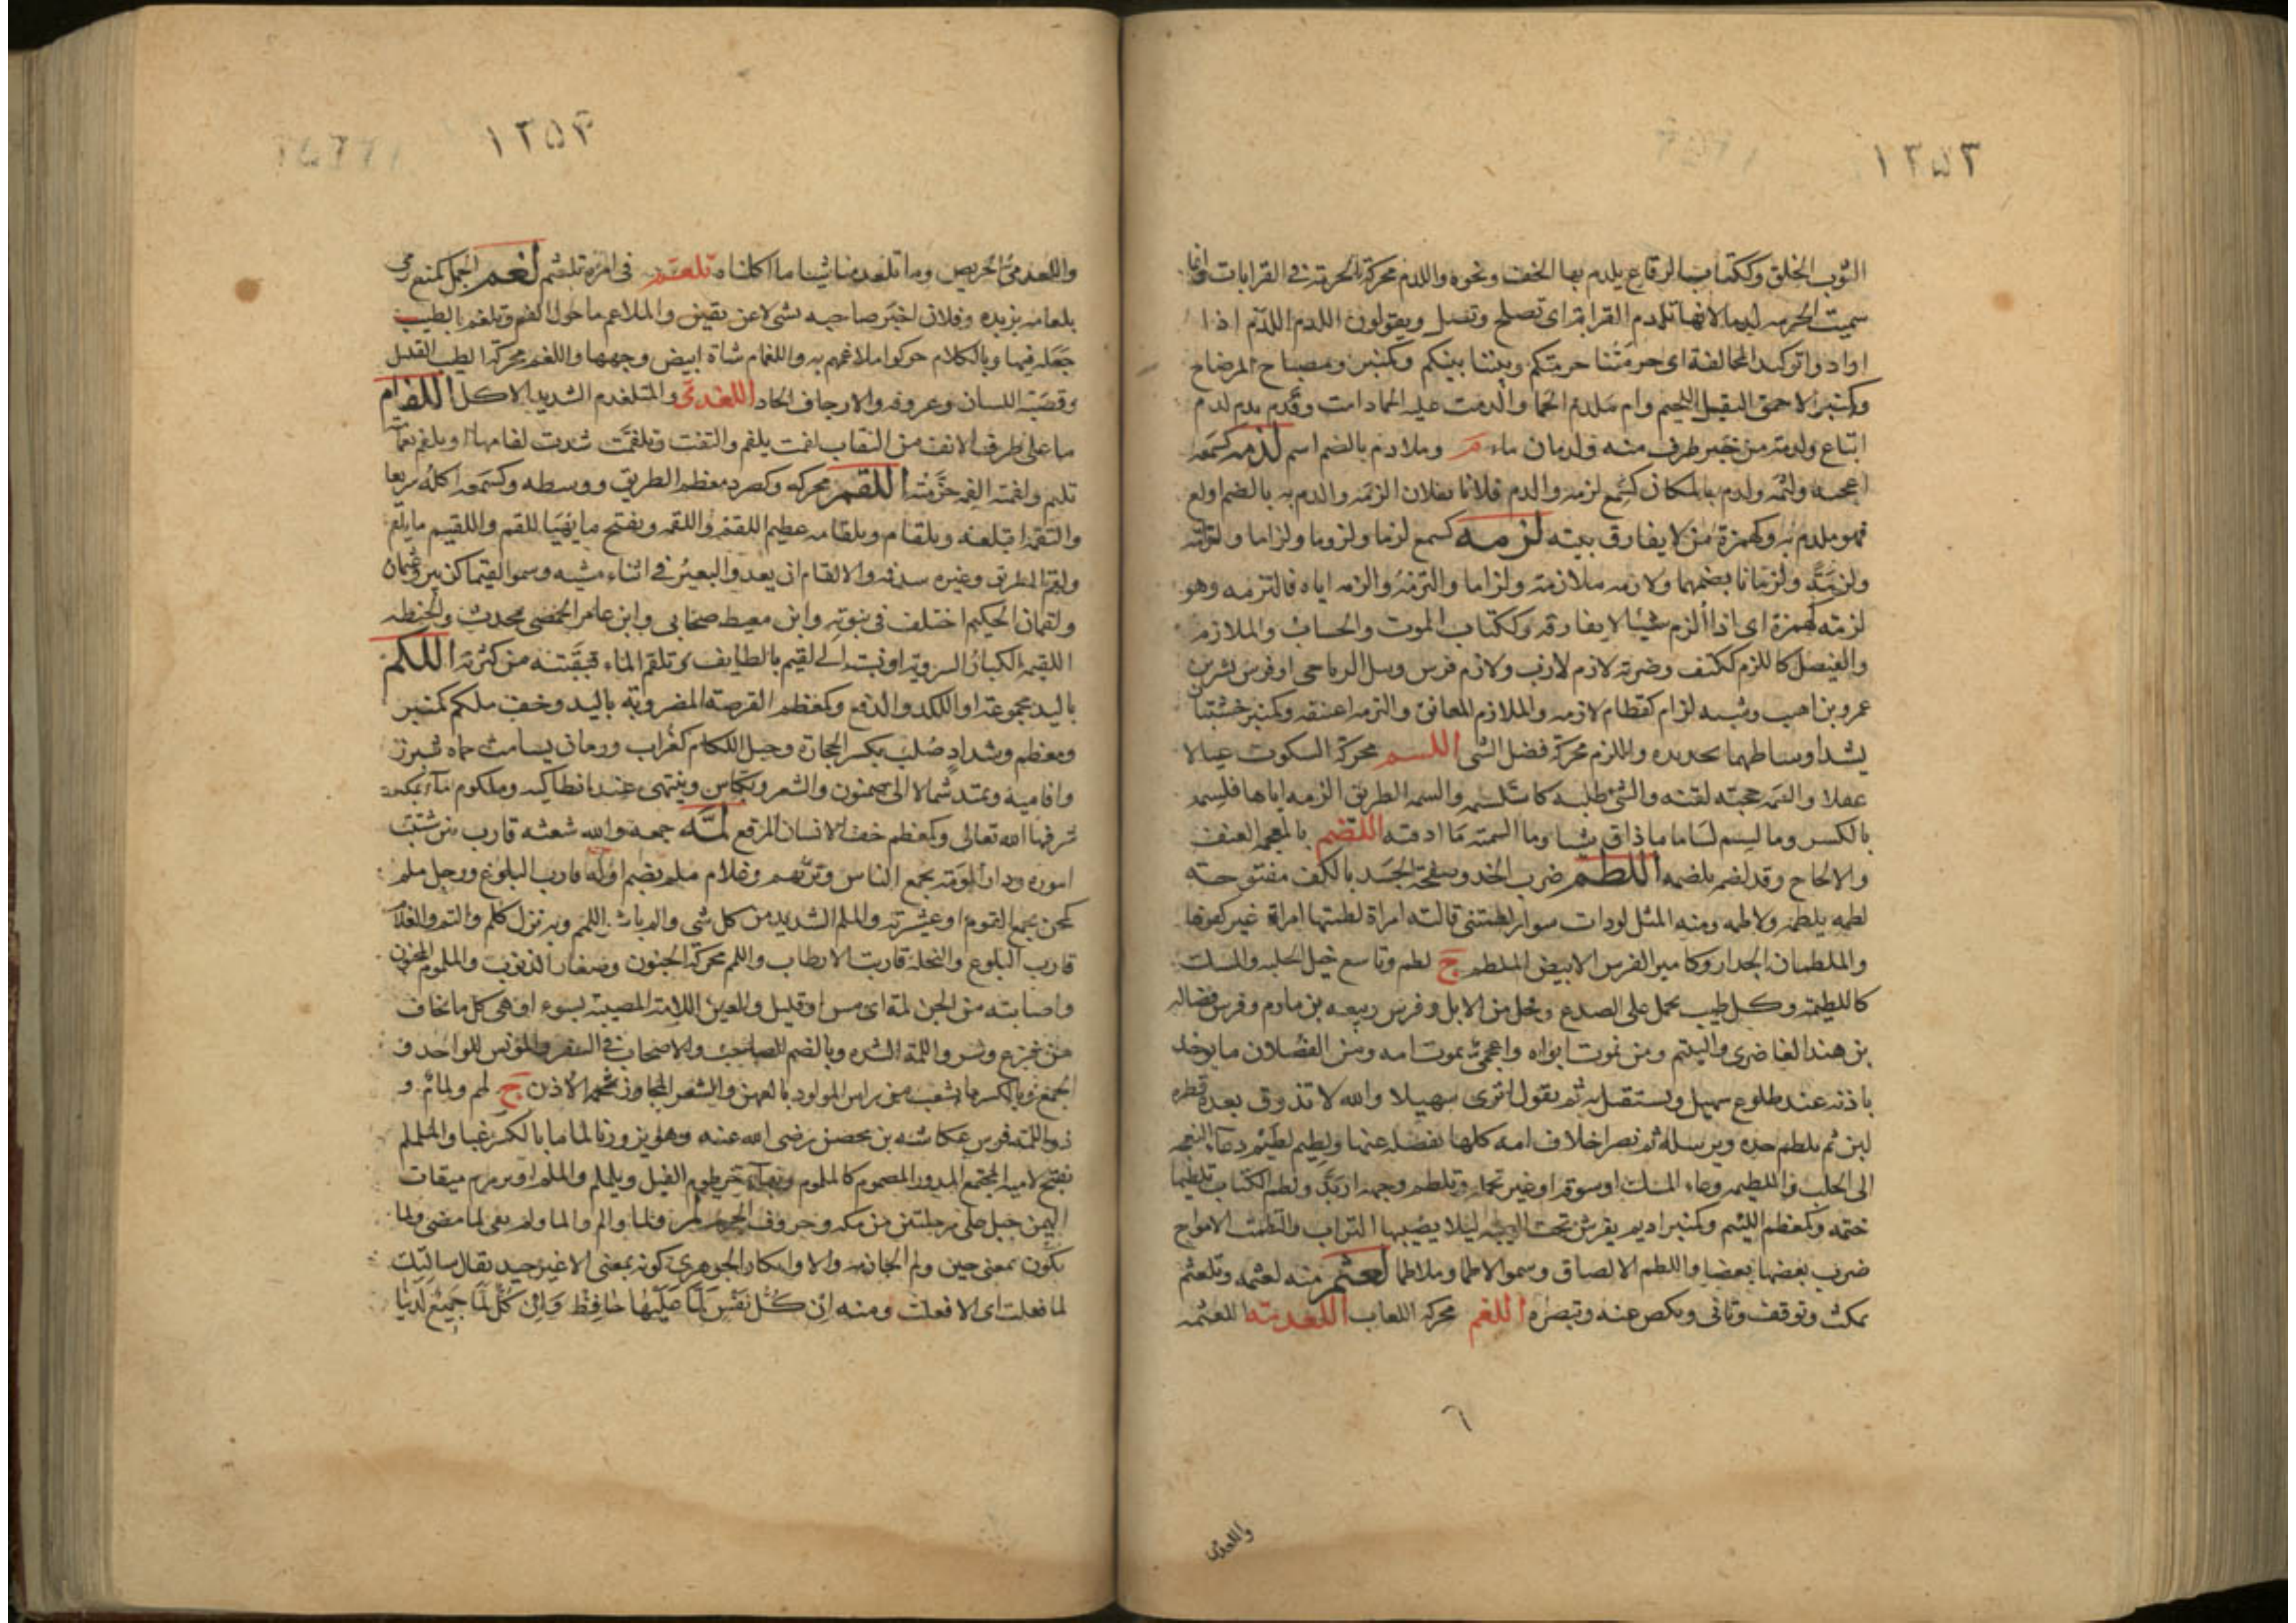 ١٢٥٣
الثوب الخلق وككتاب الرقاع يلدم بها الخف ونحوه واللدم محركة الحرمة في القرابات وانما
سميت الحرمة لدما لانها تلدم القرابة اى تصلح وتصل ويقولون اللدم اللدم اذا
ارادوا توكيد المحالفة اى حرمتنا حرمتكم وبيتنا بيتكم وكمنبر ومصباح المرضاح
وكمنبر الاحمق الثقيل اللحيم وام ملدم الحمى والدمت عليه الحمى دامت وفدم ثدم لدم
اتباع ولدمة من خبر طرف منه ولدمان ماء م وملادم بالضم اسم لذمه كسمعه
اعجبه ولثمه ولذم بالمكان كسمع لزمه والذم فلانا بفلان الزمه والذم به بالضم اولع
فهو ملذم به وكهمزة من لا يفارق بيته لزمه كسمع لزما ولزوما ولزاما ولزامة
ولزمة ولزمانا بضمهما ولازمه ملازمة ولزاما والتزمه والزمه اياه فالتزمه وهو
لزمة كهمزة اى اذا الزم شيئا لا يفارقه وككتاب الموت والحساب والملازم
والفيصل كاللزم ككتف وضربة لازم لازب ولازم فرس وثيل الرياحى او فرس لبشر بن
عمرو بن اهيب وشبه لزام كقطام لازمه والملازم المعانق والتزمه اعتنقه وكمنبر خشبتان
يشد اوساطهما بحديده واللزم محركة فصل الشى اللسم محركة السكوت عيا لا
عقلا والسمه حجته لقنه والشئ طلبه كاستلسمه والسمه الطريق الزمه اياها فلسمه
بالكسر وما لسم لساما ما ذاق شيا وما السمته ما اذقته اللضم بالمعجمة العنف
والالحاح وقد لضمه يلضمه اللطم ضرب الخد وصفحة الجسد بالكف مفتوحة
لطمه يلطمه ولاطمه ومنه المثل لو ذات سوار لطمتني قالته امراة لطمتها امراة غير كفو لها
والملطمان الخدان وكامير الفرس الابيض الملطم ج لطم وتاسع خيل الحلبة والمسك
كاللطيمة وكل طيب يحمل على الصدغ وفحل من الابل وفرس ربيعه بن مكدم وفرس فضالة
بن هند الغاضرى واليتيم ومن يموت ابواه والعجي من تموت امه ومن الفصلان ما يؤخذ
باذنه عند طلوع سهيل ويستقبل به ثم يقول اترى سهيلا والله لا تذوق بعده قطرة
لبن ثم يلطم خده ويرسله ثم يصر اخلاف امه كلها يفصله عنها ولطيم لطيم دعاء النعجه
الى الحلب واللطيمه وعاء المسك او سوقه او عير تحمله وتلطم وجهه اربد ولطم الكتاب تلطيما
ختمه وكمعظم اللئيم وكمنبر اديم يفرش تحت العيبة ليلا يصيبها التراب والتطمت الامواج
ضرب بعضها بعضا واللطم الالصاق وسموا لاطما وملاطما لعثم منه لعثمه وتلعثم
تمكث وتوقف وتانى ونكص عنه وتبصره اللعم محركة اللعاب اللعذمة اللعثمه
واللعذمى
١٢٥٤
واللعذمي الحريص وما تلعذمنا شيا ما اكلناه تلعسم في امره تلعثم لغم الجمل كمنع رمى
بلعامه بزبده وفلان اخبر صاحبه بشى لا عن يقين والملاغم ما حول الفم وتلغم بالطيب
جعله فيها وبالكلام حركوا ملاغمهم به واللغمام شاة ابيض وجهها واللغم محركة الطيب القليل
وقصبة اللسان وعروقه والارجاف الحاد اللغذمى والمتلغذم الشديد الاكل اللفام
ما على طرف الانف من النقاب لفمت تلفم والتفت وتلفمت شدت لفامها ا وتلفم بعمامته
تلثم ولفمته الفمه خزمته اللقم محركة وكصرد معظم الطريق ووسطه وكسمعه اكله سريعا
والتقمه ابتلعه ورجل تلقام وتلقامه عظيم اللقم واللقمة وتفتح ما يهيا للقم واللقيم ما يلقم
ولقم الطريق وغيره سد فمه والالقام ان يعدو البعير في اثناء مشيه وسموا لقيما كزبير وعثمان
ولقمان الحكيم اختلف في نبوته وابن معيط صحابى وابن عامر الحمصى محدث والحنطه
اللقيمية الكبار السروية او نسبت الى لقيم بالطايف وتلقم الماء قبقبته من كثرته اللكم
باليد مجموعة او اللكد والدفع وكمعظمه القرصة المضروبة باليد وخف ملكم كمنبر
ومعظم وشداد صلب يكسر الحجارة وجبل اللكام كغراب ورمان يسامت حماه شيزر
وافامية ويمتد شمالا الى صهيون والشغر وبكاس وينتهى عند انطاكيه وملكوم ماء بمكة
شرفها الله تعالى وكمعظم خف الانسان المرقع لمه جمعه والله شعثه قارب بين شتيت
اموره ودار لمومة تجمع الناس وتربهم وغلام ملم بضم اوله قارب البلوغ ورجل ملم
كمجن يجمع القوم او عشيرته والملم الشديد من كل شى والم باشر اللمم وبه نزل كلم والتم والغلام
قارب البلوغ والنخلة قاربت الارطاب واللمم محركة الجنون وصغار الذنوب والملموم المجنون
واصابته من الجن لمة اى مس او قليل والعين اللامة المصيبة بسوء او هى كل ما يخاف
من فزع وشر واللمة الشدة وبالضم الصاحب والاصحاب في السفر والمونس للواحد و
الجمع وبالكسر ما تشعب من راس الموتود بالفهر والشعر المجاوز شحمة الاذن ج لمم ولمام و
ذو اللمة فرس عكاشه بن محصن رضى الله عنه وهو يزورنا لماما بالكسر غبا والململم
بفتح لاميه المجتمع المدور المضموم كالملموم وبهاء خرطوم الفيل ويلملم والملم او يرمرم ميقات
اليمن جبل على مرحلتين من مكه وحروف الجزم لم ولما والم والما ولم نفى لما مضى ولما
تكون بمعنى حين ولم الجازمه والا وانكار الجوهري كونه بمعنى الا غير جيد يقال سالتك
لما فعلت اى الا فعلت ومنه ان كل نفس لما عليها حافظ وان كل لما جميع لدينا